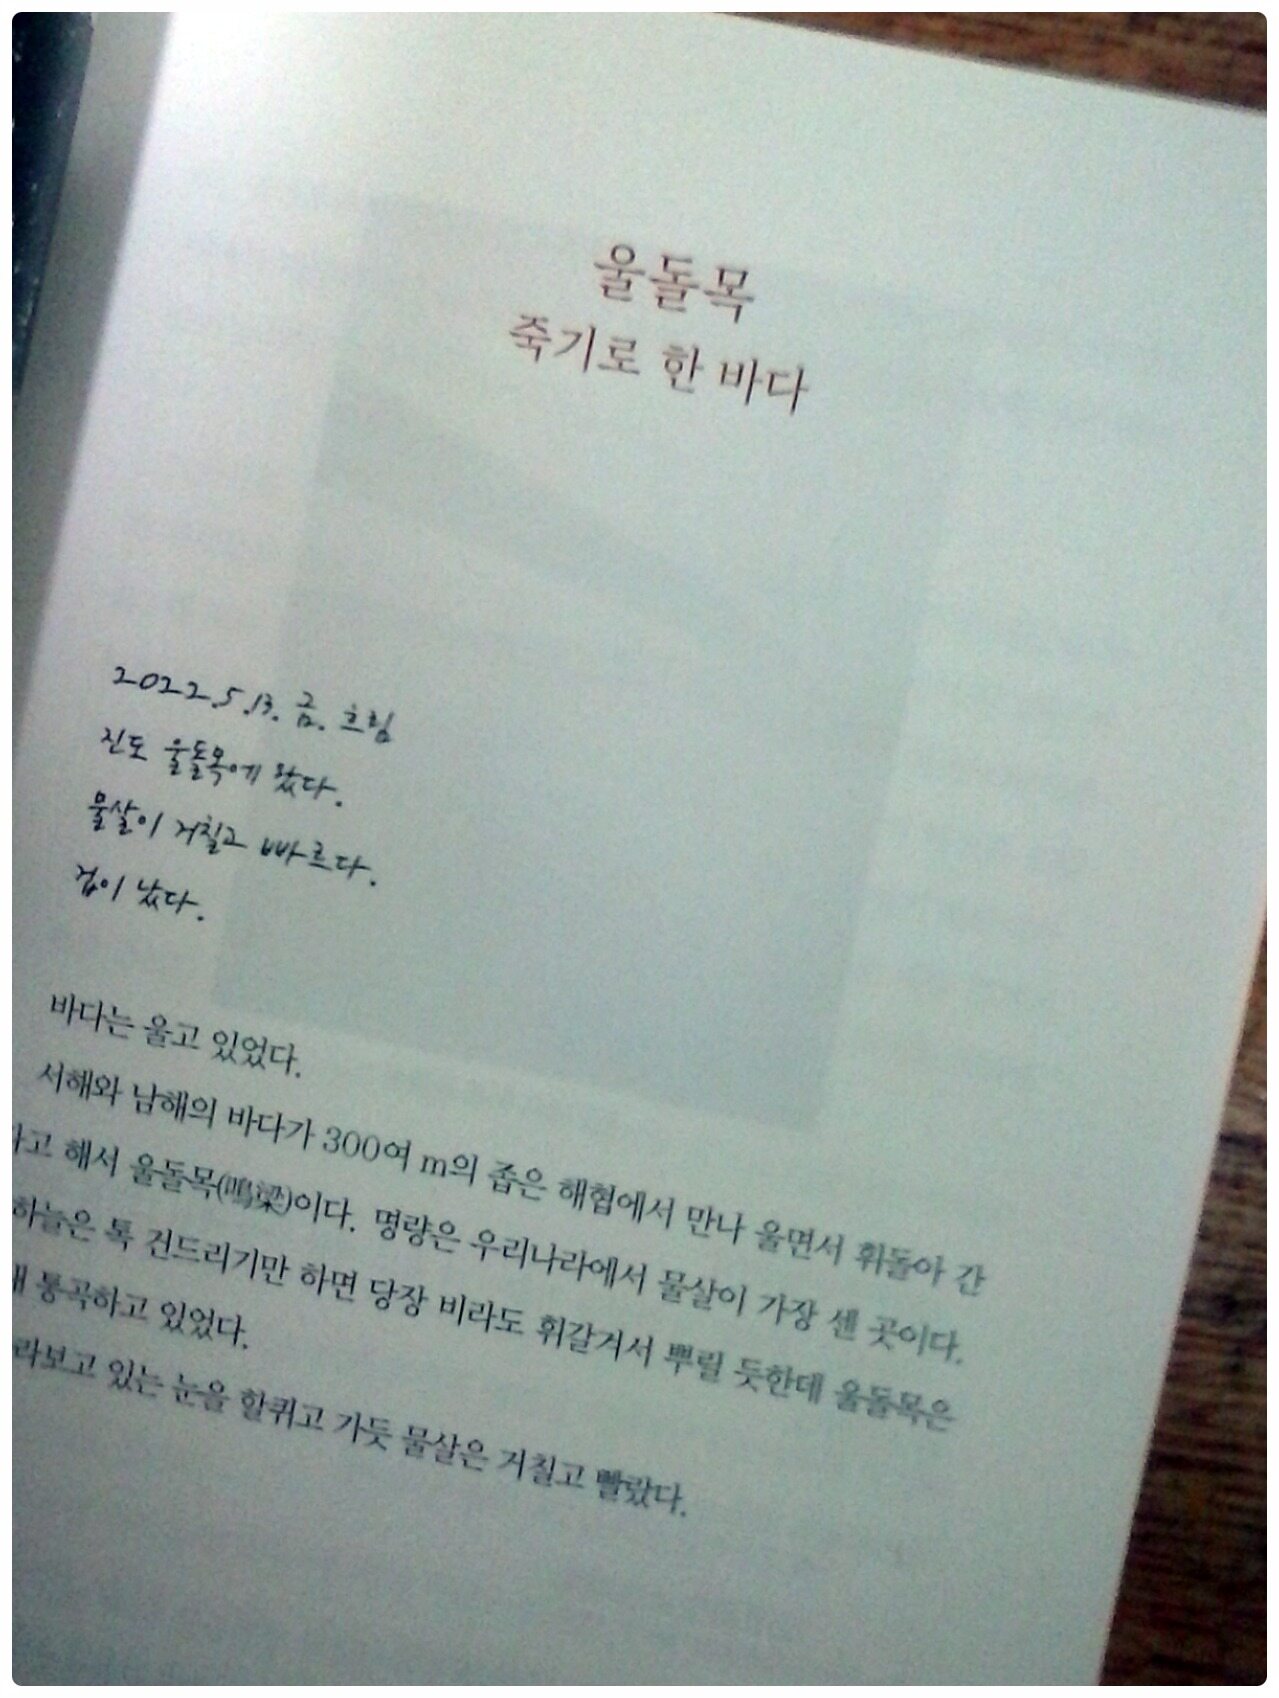 울돌목
죽기로 한 바다
2022.5.13. 금. 흐림
진도 울돌목에 왔다.
물살이 거칠고 빠르다.
겁이 났다.
바다는 울고 있었다.
서해와 남해의 바다가 300여 m의 좁은 해협에서 만나 울면서 휘돌아 간
다고 해서 울돌목(鳴梁)이다. 명량은 우리나라에서 물살이 가장 센 곳이다.
하늘은 톡 건드리기만 하면 당장 비라도 휘갈겨서 뿌릴 듯한데 울돌목은
통곡하고 있었다.
라보고 있는 눈을 할퀴고 가듯 물살은 거칠고 빨랐다.